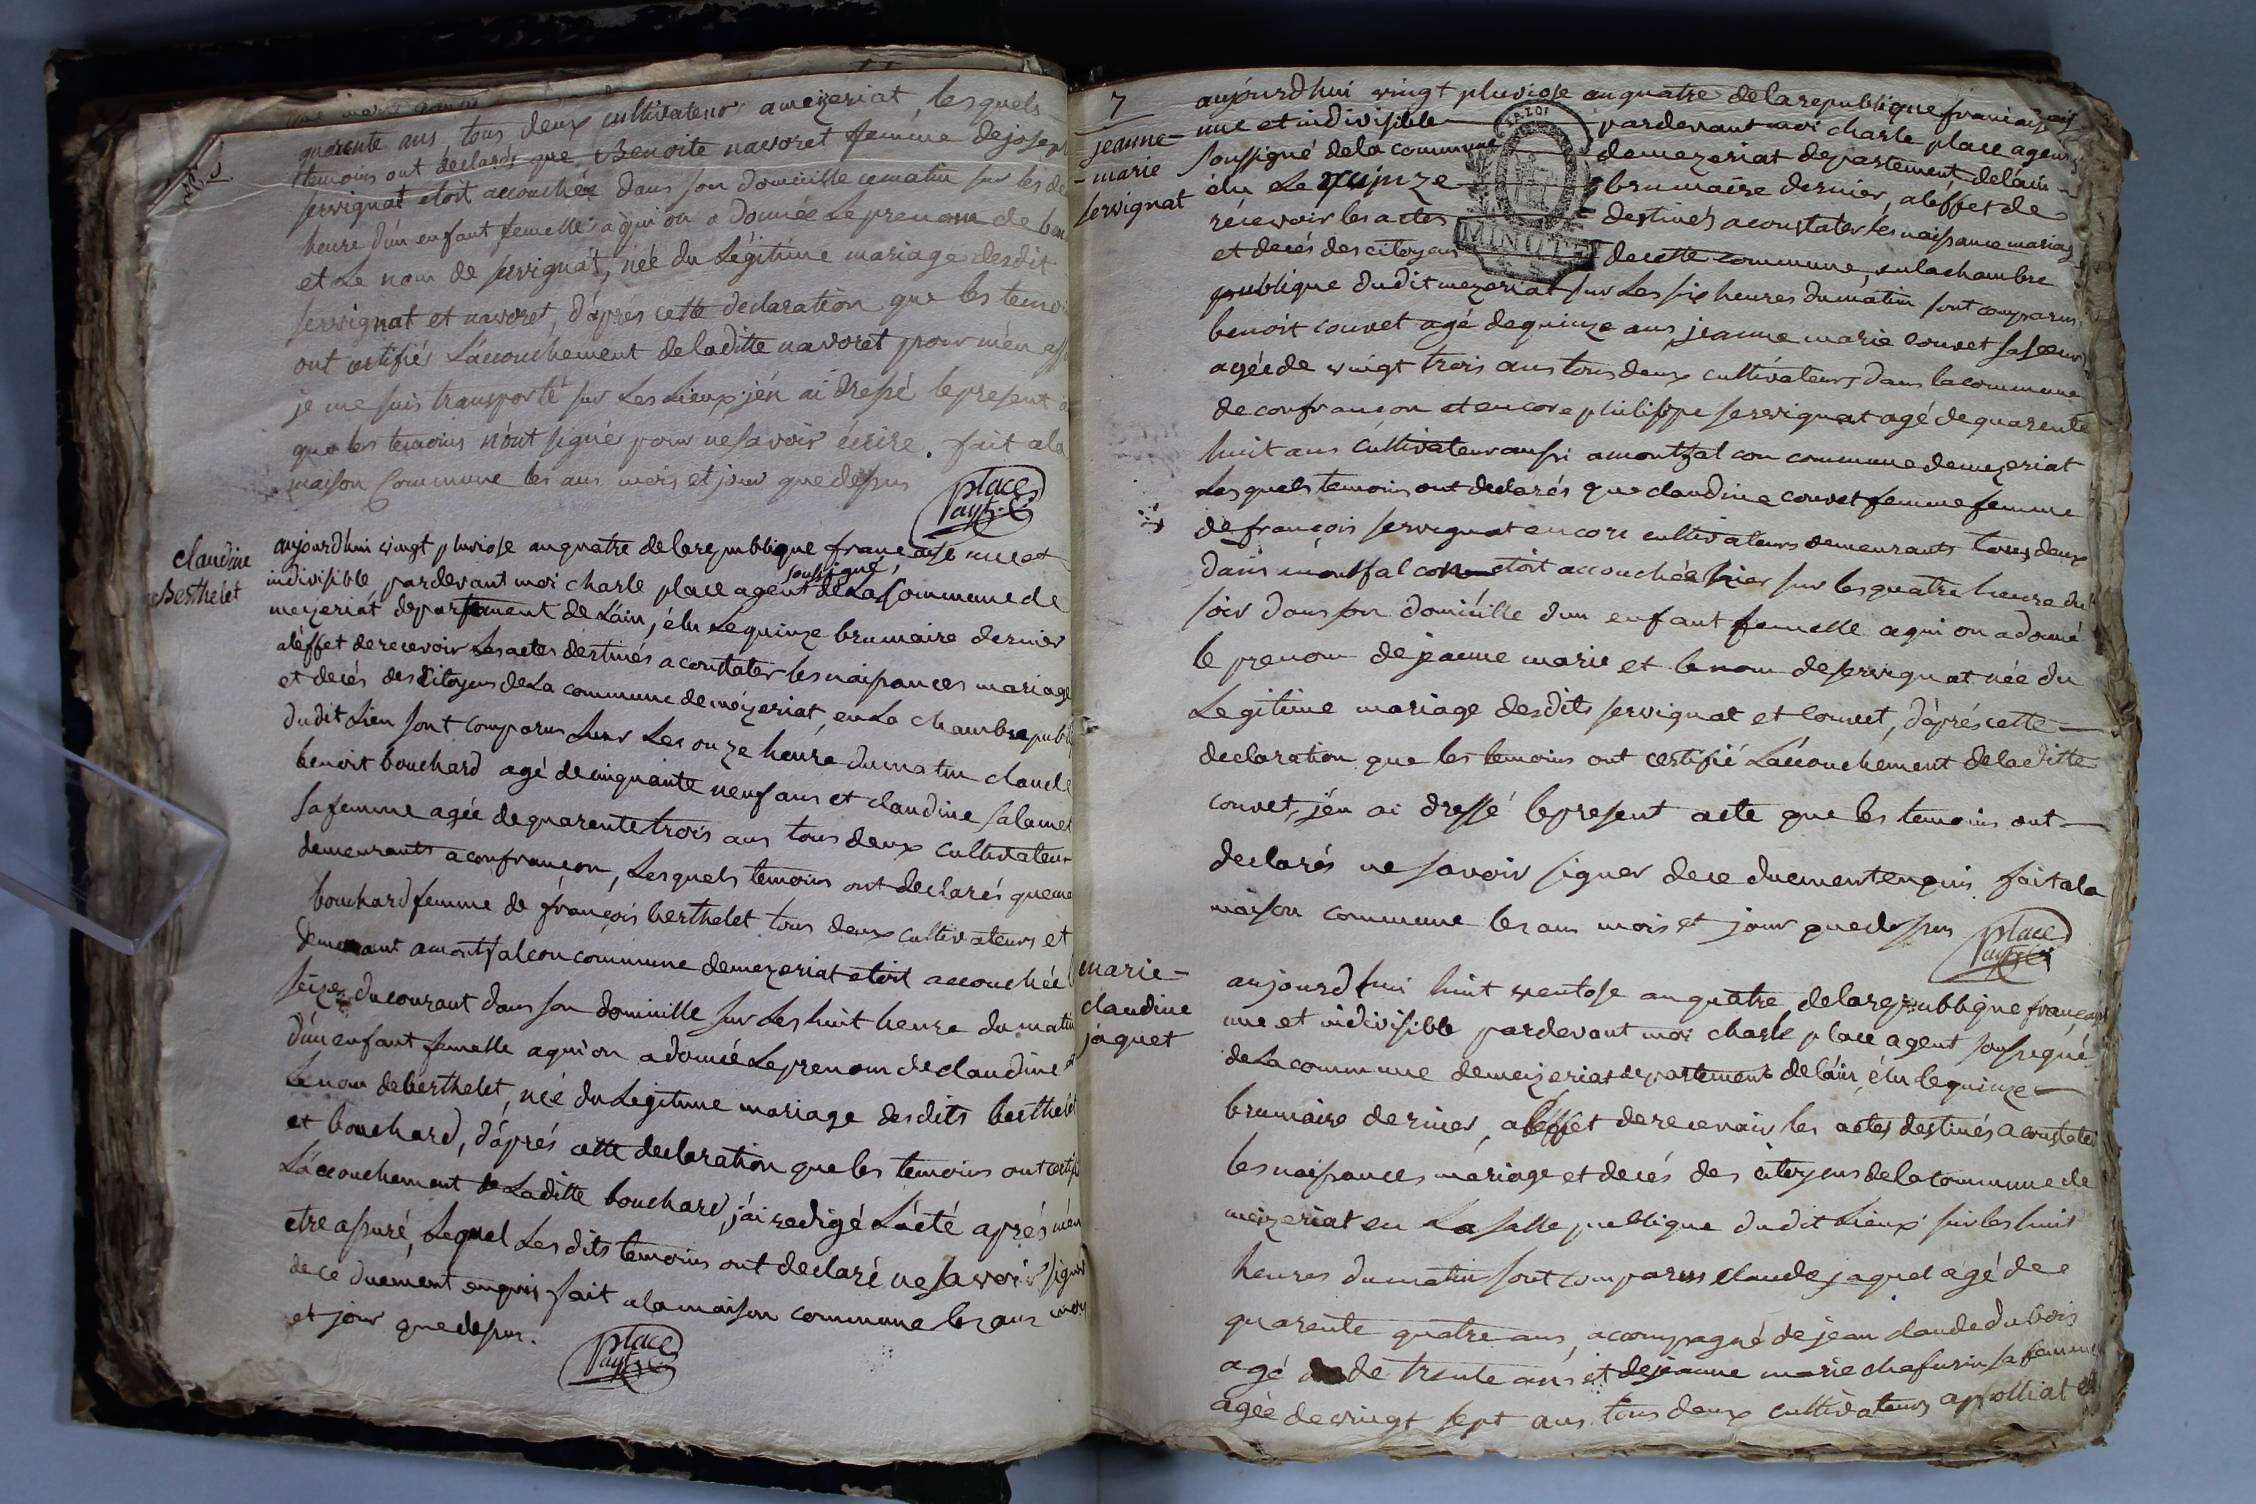 quarente ans, tous deux cultivateur amezeriat, lesquels
temoins ont declarés que Benoite navoret femme dejoseph
servignat etoit accouchée dans son domicille cematin sur les
heure d'un enfant femelle a qui on a donnée Le prenom de
et Le nom de servignat, née du Légitime mariage desdit
servignat et navoret, d'aprés cette declaration que les temoi
ont certifiés L'accouchement deladitte navoret pour m'en
je me suis transporté sur Les Lieux j'en ai dressé lepresent
que les temoins n'ont signés pour nesavoir écrire. fait ala
maison Commune les ans mois et jour quedessus
place
agt
claudine
Berthelet
aujourdhui vingt pluviose anquatre delarepublique française une et
indivisible pardevant moi charle place agent soussigné, deLa Commune de
mezeriat departement de L'ain, élu Lequinze brumaire dernier
aléffet derecevoir Les actes destinés aconstater les naissances mariage
et decés des Citoyens deLa commune demézeriat, en La chambre publi
dudit Lieu sont comparus sur Les onze heure dumatin claude
benoit bouchard agé decinquante neuf ans et claudine salamet
safemme agée dequarentetrois ans tous deux cultivateur
demeurants aconfrançon, Lesquels temoins ont declarés que
bouchard femme de françois berthelet tous deux cultivateurs et
demeurant amontfalcon commune demezeriat etoit accouchée
seize ducourant dans son domicille sur Les huit heure du matin
d'un enfant femelle aquion adonnée Leprenom de claudine et
Lenom deberthelet, née du Légitime mariage desdits berthelet
et bouchard, d'aprés cette declaration que les temoins ont certifi
L'accouchement de Laditte bouchard, j'ai redigé L'acté aprés m'en
etre assuré, Lequel Les dits temoins ont declaré nesavoir signer
de ce duement enquis fait alamaison commune les ans mois
et jour quedessus.
place
agt
7
jeanne-
-marie
servignat
aujourdhui vingt pluviose anquatre delarepublique française
une et indivisible pardevant moi charle place agent
soussigné dela commune demezeriat departement delain
élu Le quinze brumaire dernier, aléffet de
récevoir les actes destinés aconstater les naissance mariage
et decés des citoyens decette commune, enlachambre
publique dudit mezeriat sur Les six heures dumatin sont comparus,
benoit couvet agé dequinze ans, jeanne marie couvet sasœur
agée de vingt trois ans tous deux cultivateurs dans lacommune
deconfrançon et encore philippe servignat agé dequarente
huit ans cultivateur aussi amontfal con commune demezeriat
Les quels temoins ont declarés que claudine couvet femme femme
de françois servignat encore cultivateurs demeurants tous deux
dans montfalcon etoit accouchée hier sur lesquatre heure du
soir dans son domicille d'un enfant femelle aqui on adonné
le prenom de jeanne marie et le nom deservignat née du
Legitime mariage desdits servignat et couvet, d'aprés cette
declaration que les temoins ont certifié L'accouchement deladitte
couvet, j'en ai dressé lepresent acte que les temoins ont
declarés ne savoir signer dece duementenquis fait ala
maison commune les ans mois et jour quedessus
place
agt
marie-
claudine
jaquet
aujourdhui huit ventose anquatre delarepublique français
une et indivisible pardevant moi charle place agent soussigné
deLacommune demezeriat departement deláin, élu lequinze
brumaire dernier, aléffet derecevoir les actes destinés aconstater
les naissances mariage et decés des citoyens delacommune de
mezeriat en La salle publique dudit Lieux sur les huit
heures dumatin sont comparus claude jaquet agé de
quarente quatre ans, accompagné dejean claude dubois
agé de trente ans et dejeanne marie chafurin safemme
agée devingt sept ans, tous deux cultivateurs apolliat et
MINUTE
LA LOI